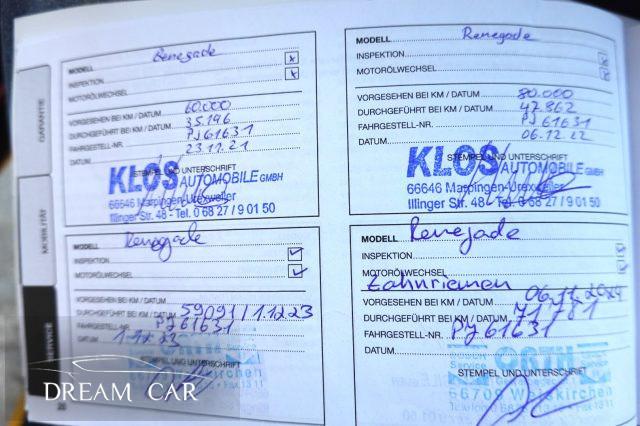 GARANTIE
MOBILITÄT
SERVICE
MODELL Renegade
INSPEKTION x
MOTORÖLWECHSEL x
VORGESEHEN BEI KM / DATUM 60.000
DURCHGEFÜHRT BEI KM / DATUM 35.196
FAHRGESTELL-NR. PJ61631
DATUM 23.11.21
STEMPEL UND UNTERSCHRIFT
KLOS AUTOMOBILE GMBH
66646 Marpingen-Urexweiler
Illinger Str. 48 - Tel. 0 68 27 / 9 01 50
MODELL Renegade
INSPEKTION x
MOTORÖLWECHSEL x
VORGESEHEN BEI KM / DATUM 80.000
DURCHGEFÜHRT BEI KM / DATUM 47.862
FAHRGESTELL-NR. PJ61631
DATUM 06.12.22
STEMPEL UND UNTERSCHRIFT
KLOS AUTOMOBILE GMBH
66646 Marpingen-Urexweiler
Illinger Str. 48 - Tel. 0 68 27 / 9 01 50
MODELL Renegade
INSPEKTION
MOTORÖLWECHSEL
VORGESEHEN BEI KM / DATUM
DURCHGEFÜHRT BEI KM / DATUM 59091 / 1.12.23
FAHRGESTELL-NR. PJ61631
DATUM 1.12.23
STEMPEL UND UNTERSCHRIFT
MODELL Renegade
INSPEKTION
MOTORÖLWECHSEL
Zahnriemen
VORGESEHEN BEI KM / DATUM 06.11.2024
DURCHGEFÜHRT BEI KM / DATUM 71781
FAHRGESTELL-NR. PJ61631
DATUM
ORTH
STEMPEL UND UNTERSCHRIFT
66709 Weiskirchen
DREAM CAR